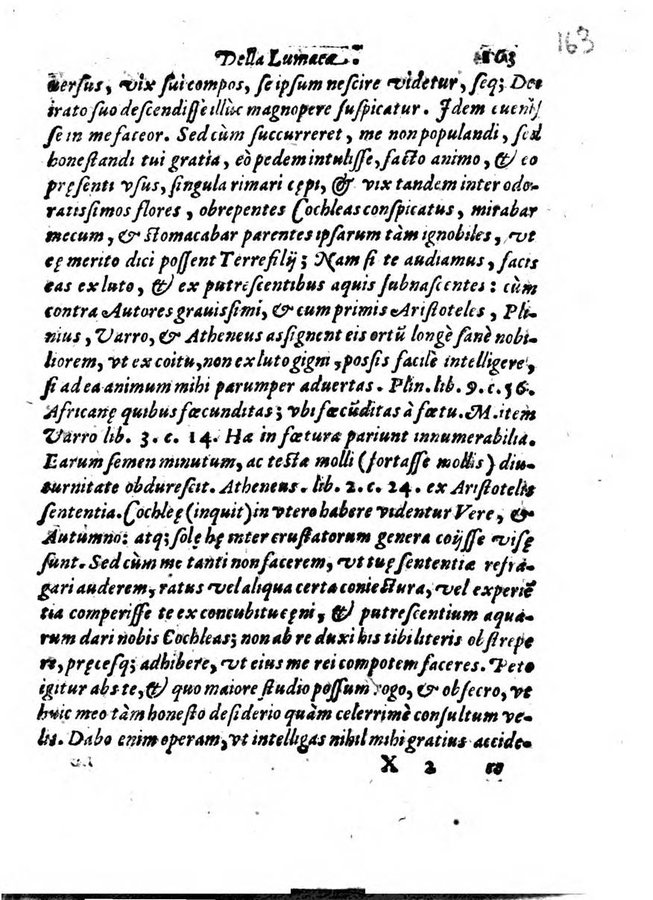 163
Della Lumaca. 163
uersus, vix sui compos, se ipsum nescire videtur, seq; Deo
irato suo descendisse illuc magnopere suspicatur. Idem euenis
se in me faceor. Sed cùm succurreret, me non populandi, sed
honestandi tui gratia, eò pedem intulisse, facto animo, & eo
pręsenti vsus, singula rimari cępi, & vix tandem inter odo-
ratissimos flores, obrepentes Cochleas conspicatus, mirabar
mecum, & stomacabar parentes ipsarum tàm ignobiles, vt
eę merito dici possent Terrefilij; Nam si te audiamus, facis
eas ex luto, & ex putrescentibus aquis subnascentes: cùm
contra Autores grauissimi, & cum primis Aristoteles, Pli-
nius, Varro, & Atheneus assignent eis ortũ longè sanè nobi-
liorem, vt ex coitu, non ex luto gigni, possis facilè intelligere,
si ad ea animum mihi parumper aduertas. Plin. lib. 9. c. 56.
Africanę quibus fœcunditas; vbi fœcũditas à fœtu. M. item
Varro lib. 3. c. 14. Hæ in fœtura pariunt innumerabilia.
Earum semen minutum, ac testa molli (fortasse mollis) diu-
turnitate obdurescit. Atheneus. lib. 2. c. 24. ex Aristotelis
sententia. Cochleę (inquit) in vtero habere videntur Vere, &
Autumno: atq; solę hę inter crustatorum genera coijsse visę
sunt. Sed cùm me tanti non facerem, vt tuę sententiæ refra-
gari auderem, ratus vel aliqua certa coniectura, vel experiẽ
tia comperisse te ex concubitu cęni, & putrescentium aqua-
rum dari nobis Cochleas; non ab re duxi his tibi literis obstrepe
re, pręcesq; adhibere, vt eius me rei compotem faceres. Peto
igitur abs te, & quo maiore studio possum rogo, & obsecro, vt
huic meo tàm honesto desiderio quàm celerrimè consultum ve-
lis. Dabo enim operam, vt intelligas nihil mihi gratius accide-
X 2 re